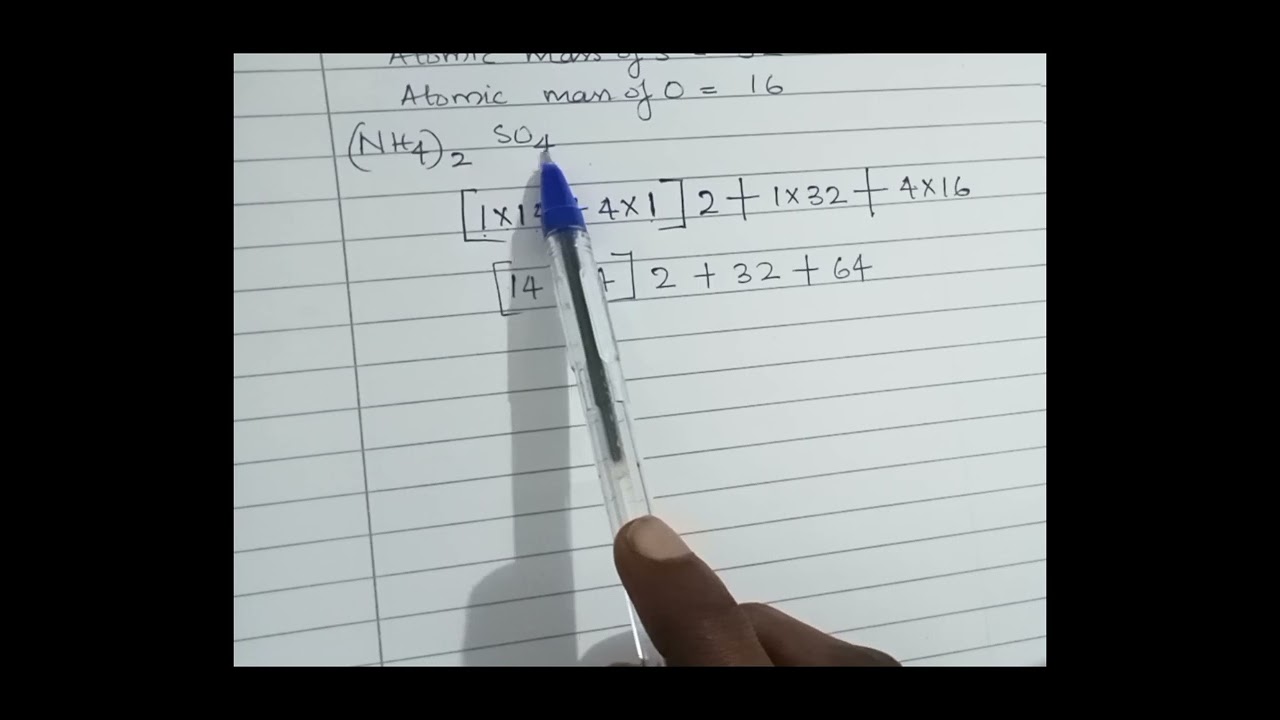 Atomic mass of S = 32
Atomic mass of O = 16
(NH4)2 SO4
[1×14 + 4×1] 2 + 1×32 + 4×16
[14 + 4] 2 + 32 + 64